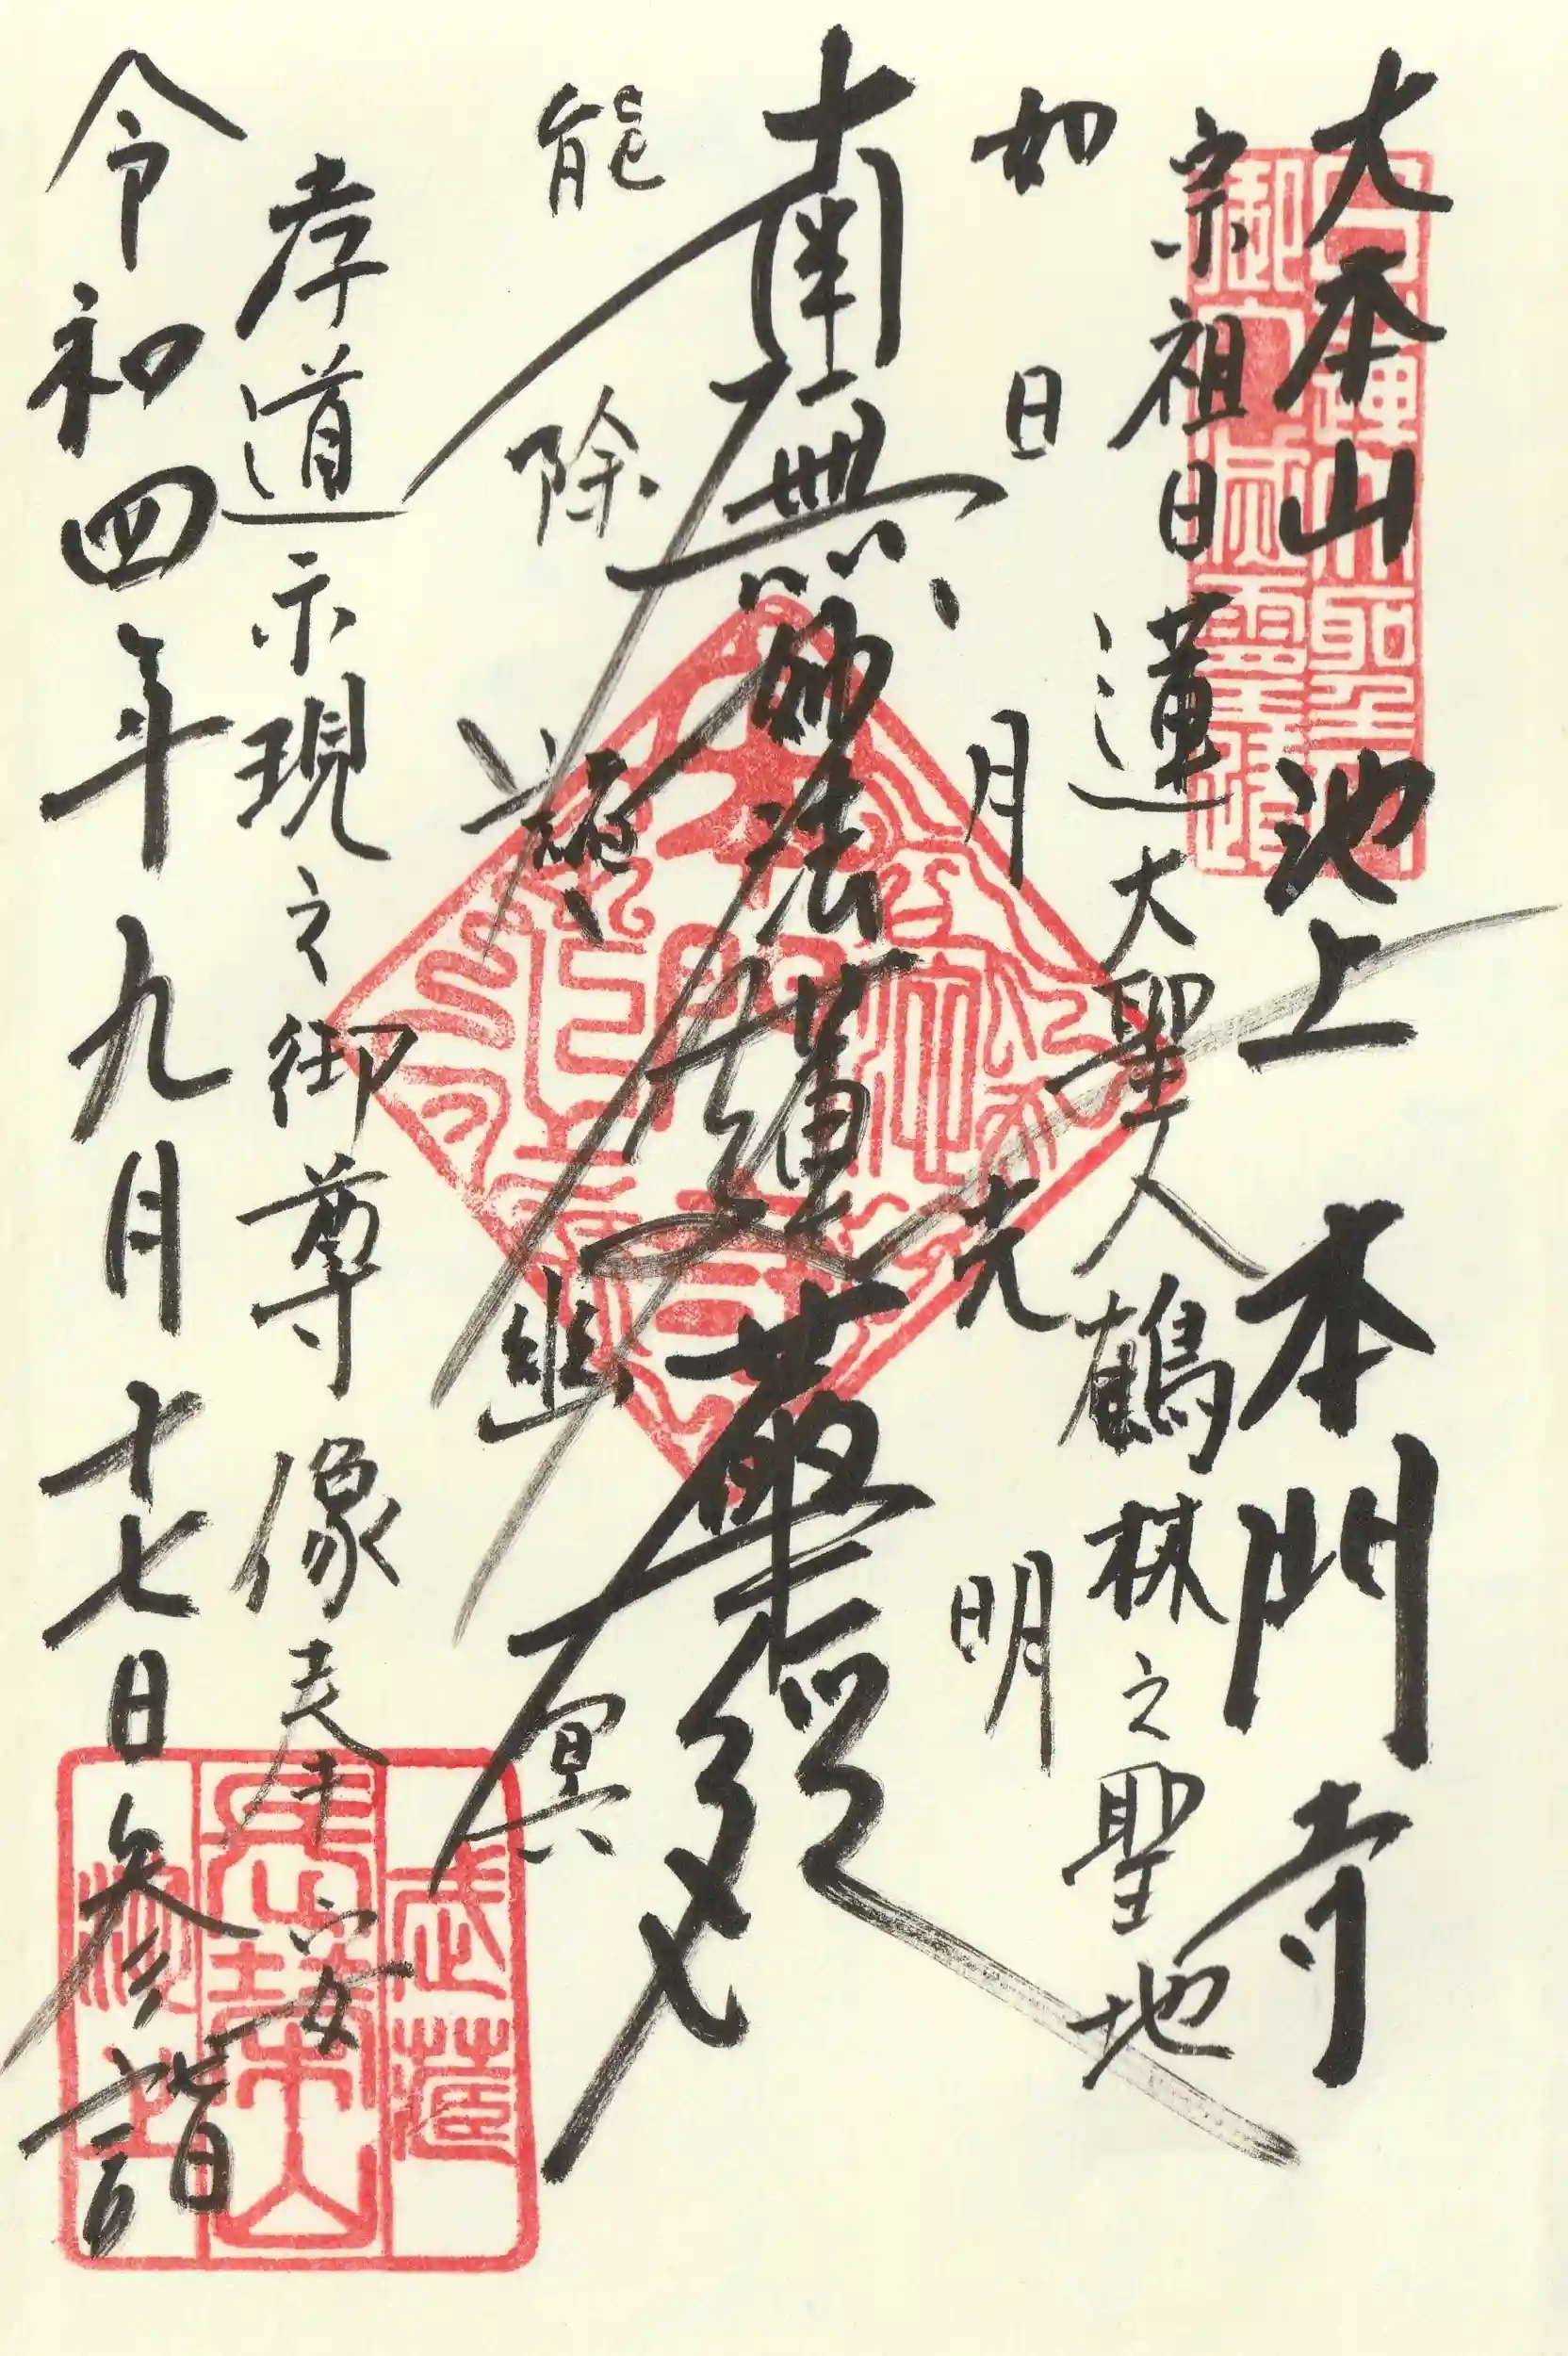 大本山池上本門寺
宗祖日蓮大聖人鶴林之聖地
如日月光明
南無妙法蓮華經
能除諸幽冥
孝道示現之御尊像奉安
令和四年九月十七日参詣
武藏
長榮山
池上